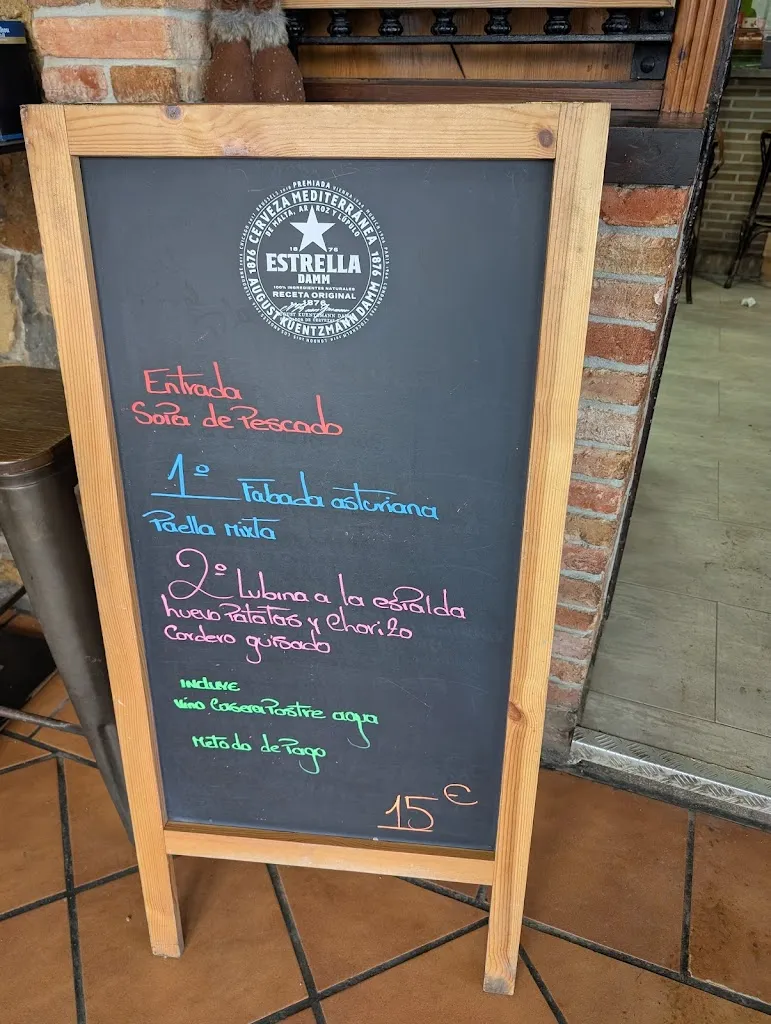 PREMIADA
CERVEZA MEDITERRÁNEA
DE MALTA, ARROZ Y LÚPULO
1876
1876
1876
ESTRELLA
DAMM
100% INGREDIENTES NATURALES
RECETA ORIGINAL
1876
AUGUST KUENTZMANN DAMM
Entrada
Sopa de Pescado
1º Fabada asturiana
Paella Mixta
2º Lubina a la espalda
huevo Patatas y Chorizo
Cordero guisado
INCLUYE
Vino Casera Postre agua
Metodo de Pago
15 €